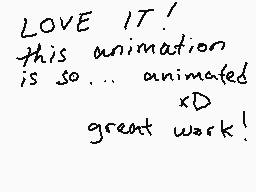 LOVE IT!
this animation
is so... animated
xD
great work!